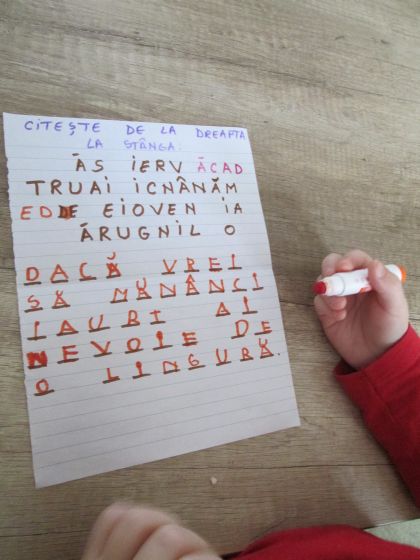 CITEȘTE DE LA DREAPTA
LA STÂNGA:
ĂS IERV ĂCAD
TRUAI ICNÂNĂM
ED DE EIOVEN IA
ĂRUGNIL O
DACĂ VREI
SĂ MĂNÂNCI
IAURT AI
NEVOIE DE
O LINGURĂ.